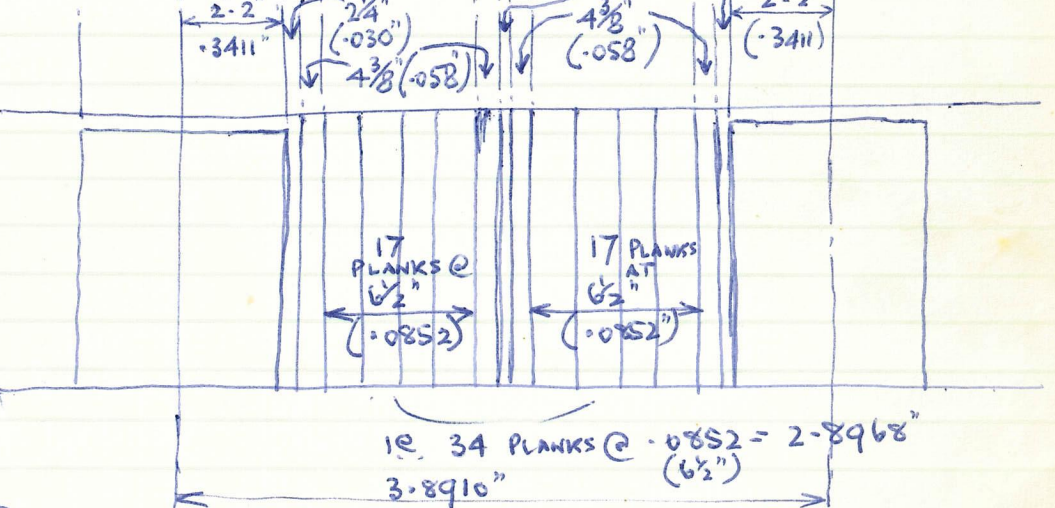 2-2
.3411"
2¼"
(.030")
4⅜" (.058")
4⅜"
(.058")
2-2
(.3411)
17
PLANKS @
6½"
(.0852)
17 PLANKS
AT
6½"
(.0852")
ie 34 PLANKS @ .0852 = 2.8968"
(6½")
3.8910"